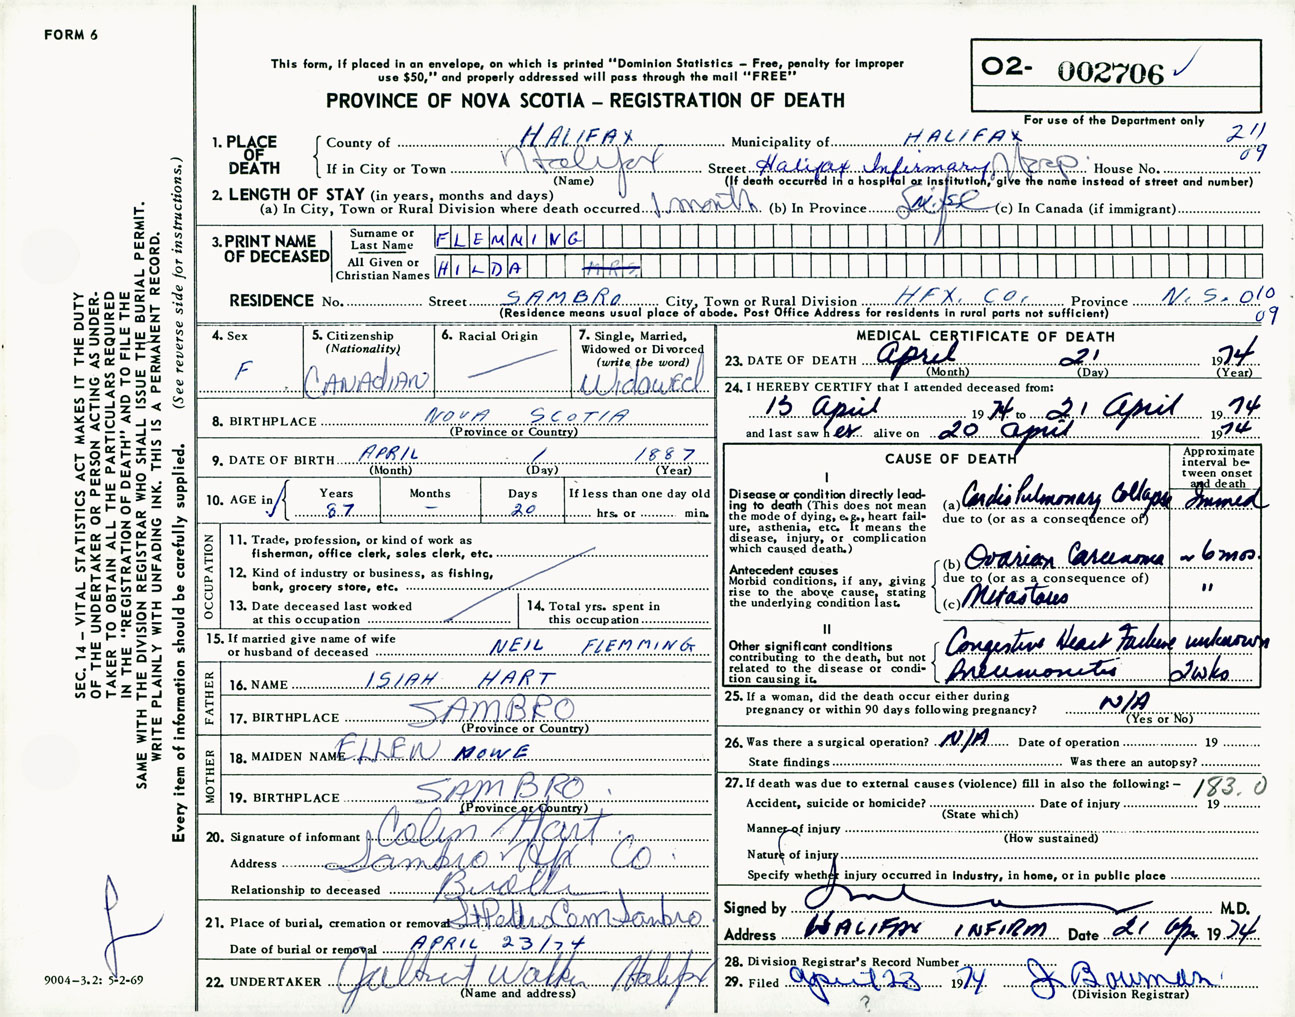 FORM 6
This form, if placed in an envelope, on which is printed "Dominion Statistics – Free, penalty for improper
use $50," and properly addressed will pass through the mail "FREE"
PROVINCE OF NOVA SCOTIA – REGISTRATION OF DEATH
O2- 002706
For use of the Department only
211
09
1. PLACE OF DEATH
County of HALIFAX Municipality of HALIFAX
If in City or Town Halifax Street Halifax Infirmary House No.
(Name) (If death occurred in a hospital or institution, give the name instead of street and number)
2. LENGTH OF STAY (in years, months and days)
(a) In City, Town or Rural Division where death occurred 1 month (b) In Province (c) In Canada (if immigrant)
3. PRINT NAME OF DECEASED
Surname or Last Name FLEMMING
All Given or Christian Names HILDA MRS
RESIDENCE No. Street SAMBRO City, Town or Rural Division HFX. CO. Province N.S. 010
(Residence means usual place of abode. Post Office Address for residents in rural parts not sufficient) 09
4. Sex F
5. Citizenship (Nationality) CANADIAN
6. Racial Origin
7. Single, Married, Widowed or Divorced (write the word) Widowed
8. BIRTHPLACE NOVA SCOTIA
(Province or Country)
9. DATE OF BIRTH APRIL 1 1887
(Month) (Day) (Year)
10. AGE in Years 87 Months – Days 20 If less than one day old hrs. or min.
OCCUPATION
11. Trade, profession, or kind of work as fisherman, office clerk, sales clerk, etc.
12. Kind of industry or business, as fishing, bank, grocery store, etc.
13. Date deceased last worked at this occupation
14. Total yrs. spent in this occupation
15. If married give name of wife or husband of deceased NEIL FLEMMING
FATHER
16. NAME ISIAH HART
17. BIRTHPLACE SAMBRO
(Province or Country)
MOTHER
18. MAIDEN NAME ELLEN NOWE
19. BIRTHPLACE SAMBRO
(Province or Country)
20. Signature of informant Colin Hart
Address Sambro Hfx Co
Relationship to deceased Brother
21. Place of burial, cremation or removal St Peters Cem Sambro
Date of burial or removal APRIL 23/74
22. UNDERTAKER Halifax
(Name and address)
MEDICAL CERTIFICATE OF DEATH
23. DATE OF DEATH April 21 1974
(Month) (Day) (Year)
24. I HEREBY CERTIFY that I attended deceased from:
13 April 1974 to 21 April 1974
and last saw her alive on 20 April 1974
CAUSE OF DEATH
Approximate interval between onset and death
I
Disease or condition directly leading to death (This does not mean the mode of dying, e.g., heart failure, asthenia, etc. It means the disease, injury, or complication which caused death.)
(a) Cardio Pulmonary Collapse Immed
due to (or as a consequence of)
Antecedent causes
Morbid conditions, if any, giving rise to the above cause, stating the underlying condition last.
(b) Ovarian Carcinoma ~ 6 mos.
due to (or as a consequence of)
(c) Metastases "
II
Other significant conditions contributing to the death, but not related to the disease or condition causing it.
Congestive Heart Failure unknown
Pneumonitis 2 wks
25. If a woman, did the death occur either during pregnancy or within 90 days following pregnancy? N/A
(Yes or No)
26. Was there a surgical operation? N/A Date of operation 19
State findings Was there an autopsy?
27. If death was due to external causes (violence) fill in also the following: – 183.0
Accident, suicide or homicide? Date of injury 19
(State which)
Manner of injury
(How sustained)
Nature of injury
Specify whether injury occurred in Industry, in home, or in public place
Signed by M.D.
Address HALIFAX INFIRM Date 21 Ap 1974
28. Division Registrar's Record Number
29. Filed April 23 1974 J. Bowman
(Division Registrar)
?
SEC. 14 – VITAL STATISTICS ACT MAKES IT THE DUTY
OF THE UNDERTAKER OR PERSON ACTING AS UNDER-
TAKER TO OBTAIN ALL THE PARTICULARS REQUIRED
IN THE "REGISTRATION OF DEATH" AND TO FILE THE
SAME WITH THE DIVISION REGISTRAR WHO SHALL ISSUE THE BURIAL PERMIT.
WRITE PLAINLY WITH UNFADING INK. THIS IS A PERMANENT RECORD.
Every item of information should be carefully supplied. (See reverse side for instructions.)
9004-3.2: 5-2-69